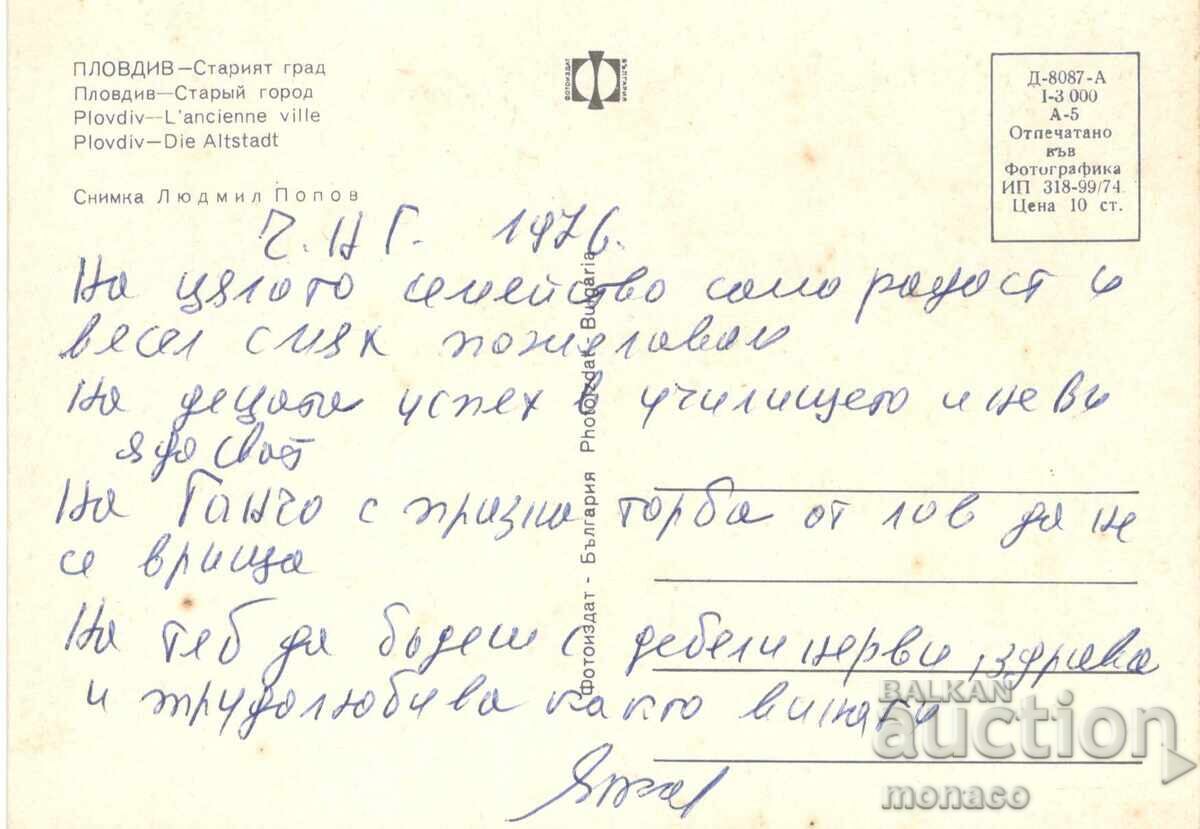 ПЛОВДИВ—Старият град
Пловдив—Старый город
Plovdiv—L'ancienne ville
Plovdiv—Die Altstadt
Снимка Людмил Попов
ФОТОИЗДАТ
БЪЛГАРИЯ
Д-8087-А
I-3 000
А-5
Отпечатано
във
Фотографика
ИП 318-99/74.
Цена 10 ст.
Ч.НГ. 1976.
На цялото семейство само радост и
весел смях пожелавам
На децата успех в училището и не ви
ядосват
На Ганчо с празна торба от лов да не
се връща
На теб да бъдеш с дебели нерви, здрава
и трудолюбива както винаги
Фотоиздат - България Photoizdat Bulgaria
BALKAN
auction
monaco